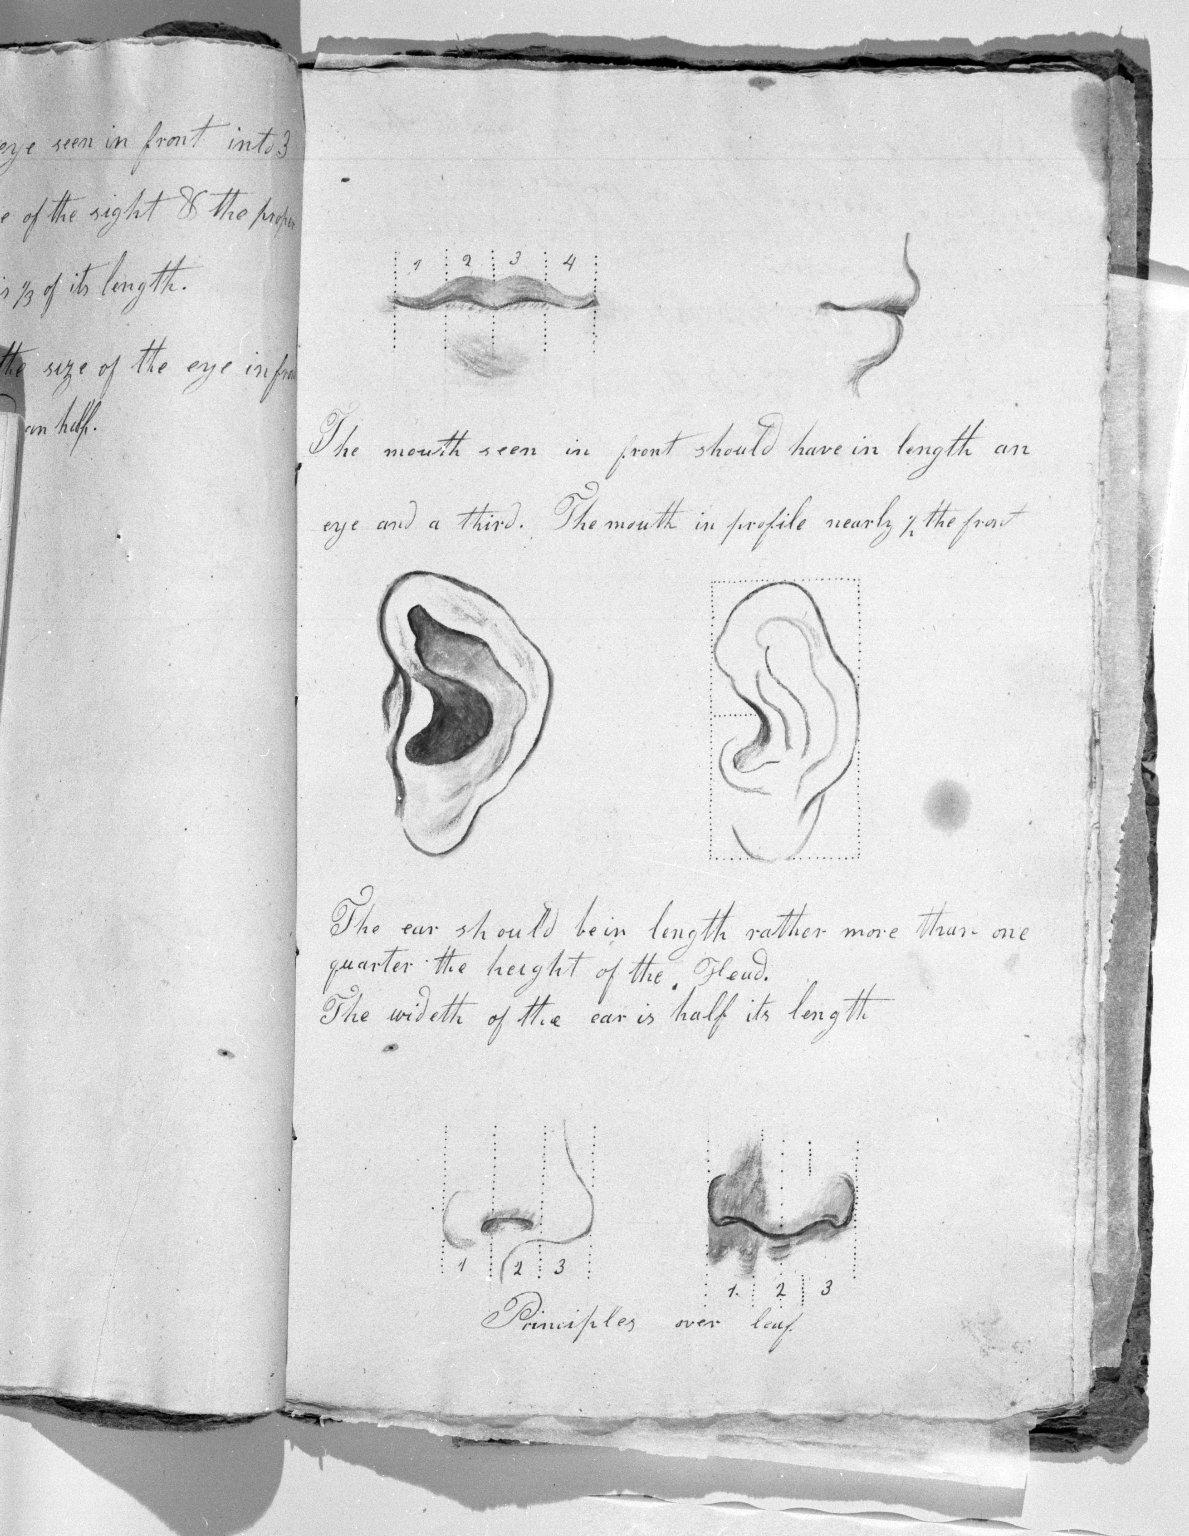 eye seen in front into 3
e of the sight & the
is 1/3 of its length.
the size of the eye in
an half.
1 2 3 4
The mouth seen in front should have in length an
eye and a third. The mouth in profile nearly 1/2 the front
The ear should be in length rather more than one
quarter the height of the Head.
The wideth of the ear is half its length
1 2 3
1. 2 3
Principles over leaf